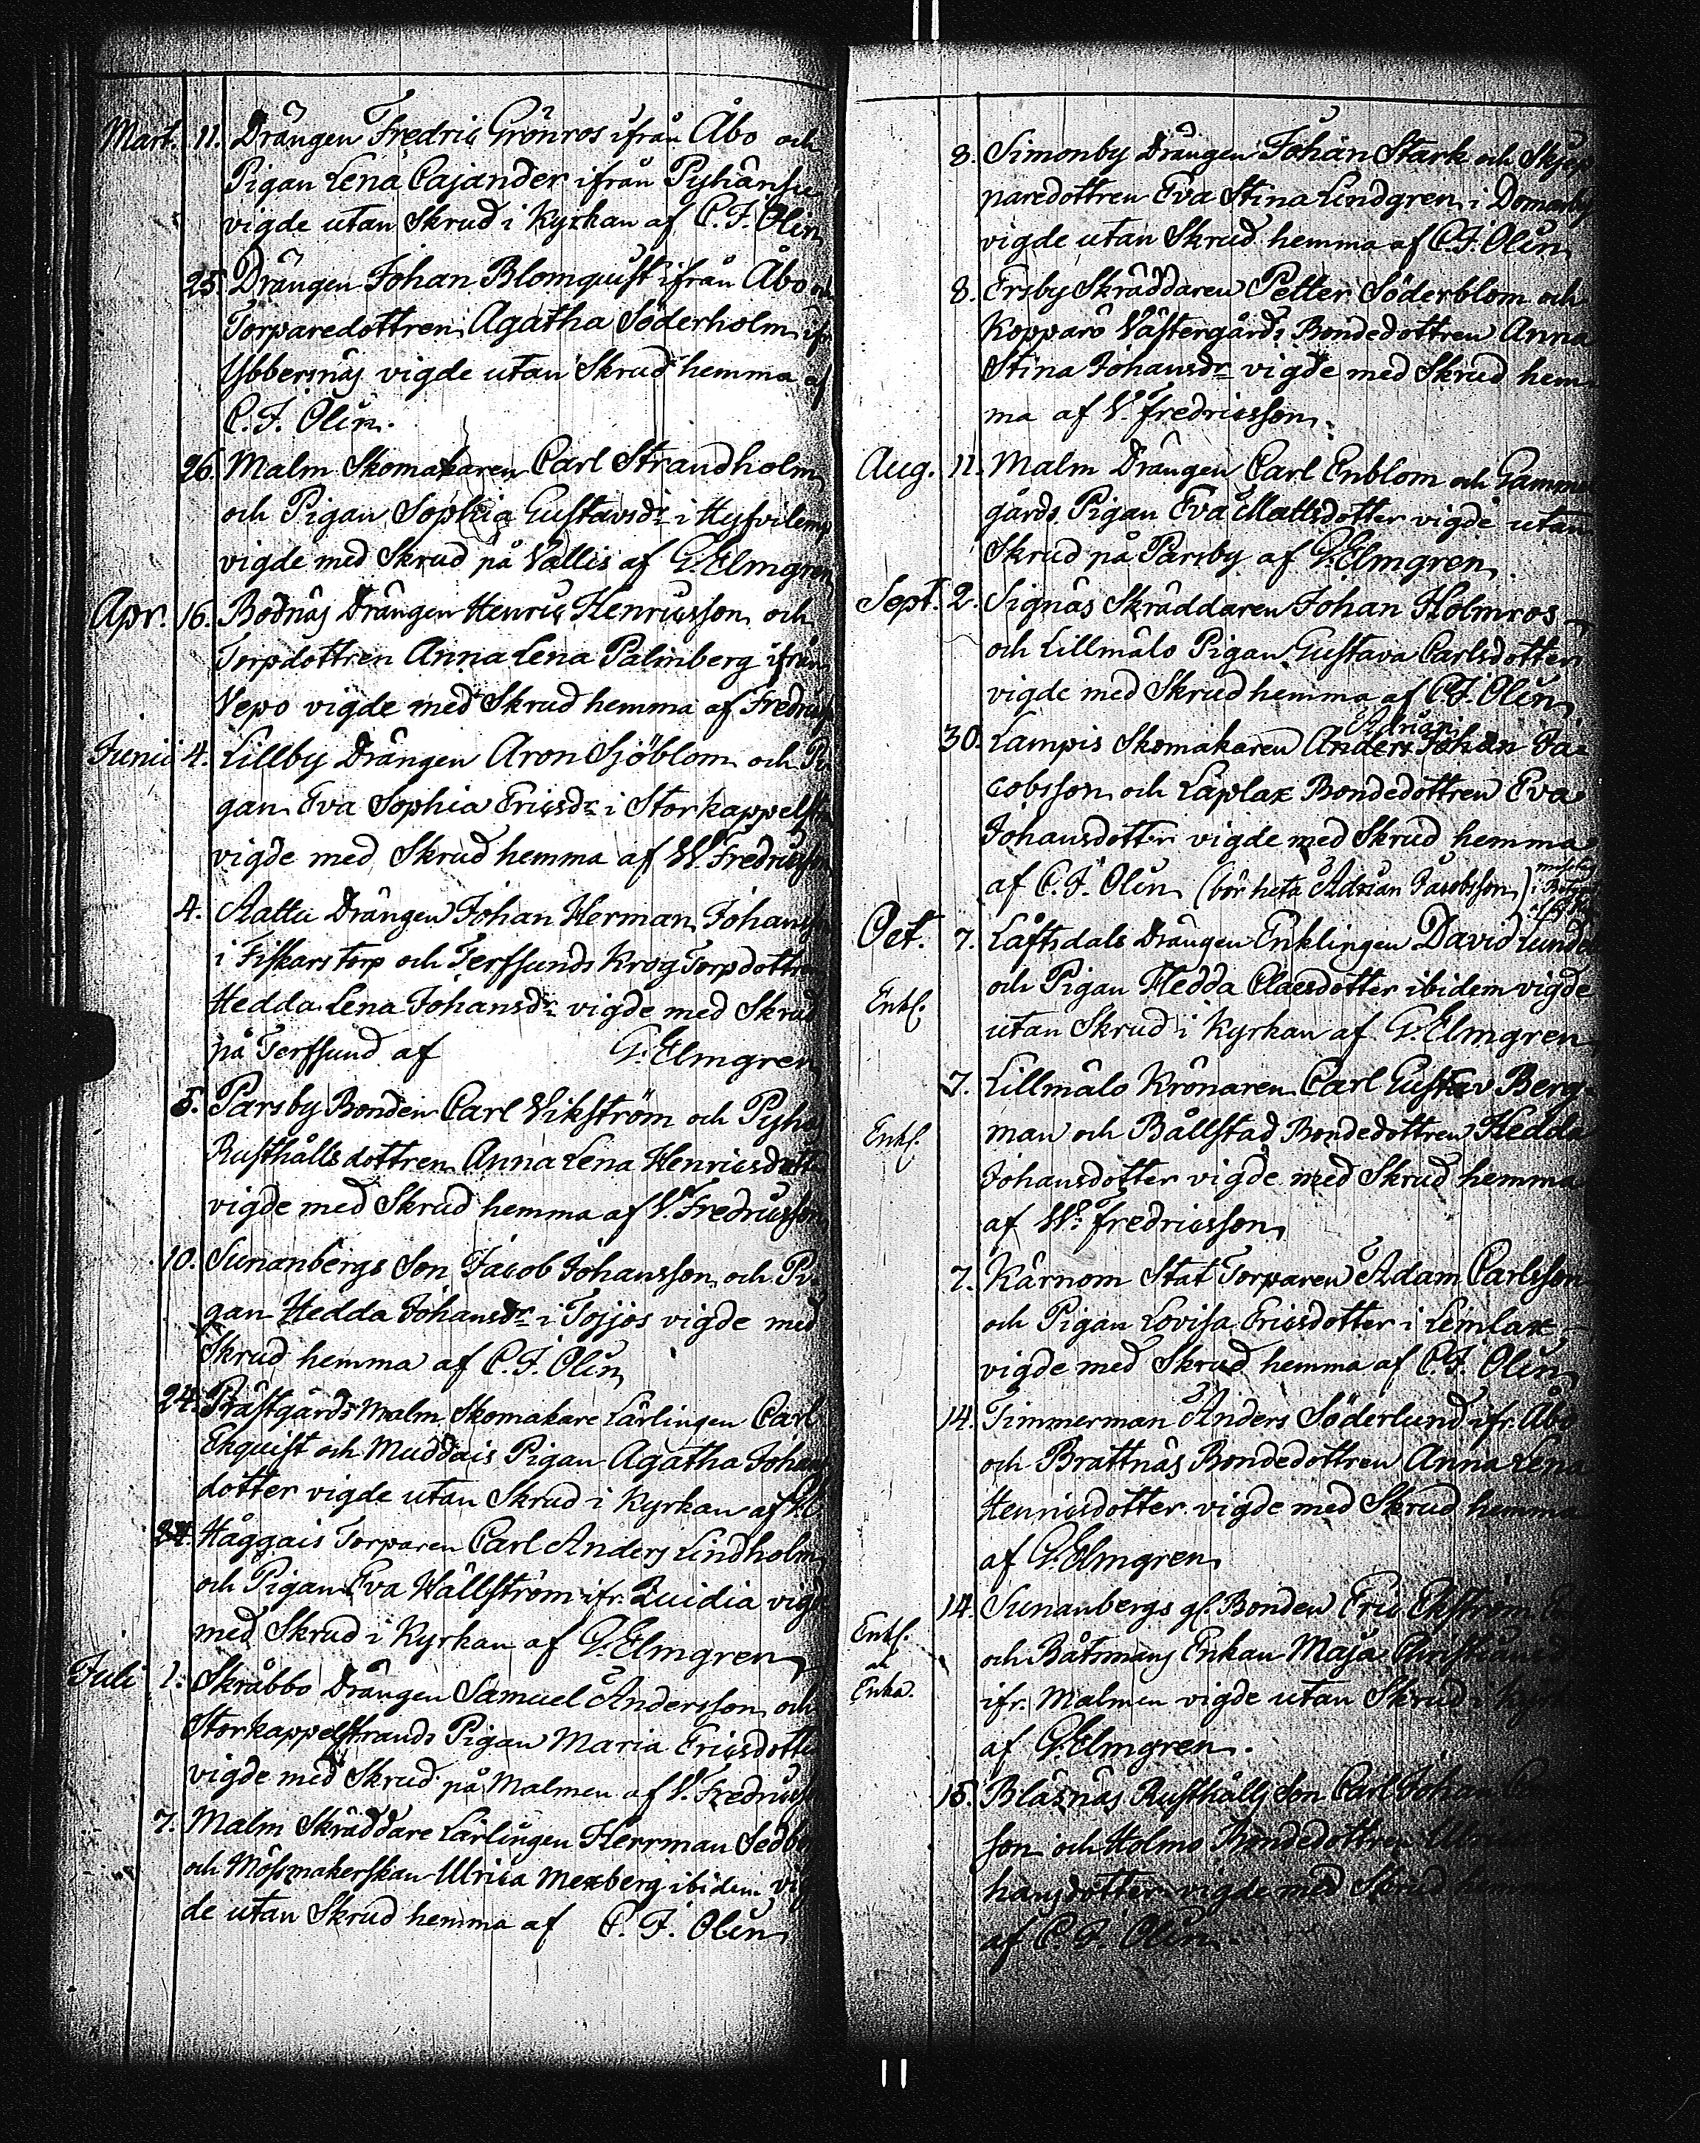 Mart. 11. Drängen Fredric Grönros ifrån Åbo och
Pigan Lena Cajander ifrån Pyhänsu
vigde utan Skrud i Kyrkan af C. F. Olin
25. Drängen Johan Blomquist ifrån Åbo
Torparedottren Agatha Söderholm ifr
Ybbersnäs vigde utan Skrud hemma af
C. F. Olin.
26. Malm Skomakaren Carl Strandholm
och Pigan Sophia Gustavsdr i
vigde med Skrud på Vallis af G. Elmgren
Apr. 16. Bodnäs Drängen Henric Henricsson och
Torpdottren Anna Lena Palmberg ifrån
Vepo vigde med Skrud hemma af Fredricss
Junii 4. Lillby Drängen Aron Sjöblom och Pi
gan Eva Sophia Ericsdr i Storkappelstr
vigde med Skrud hemma af W. Fredricsson
4. Aattu Drängen Johan Herman Johans
i Fiskars torp och Terfsunds Krog Torpdottren
Hedda Lena Johansdr vigde med Skrud
på Terfsund af G. Elmgren
5. Parsby Bonden Carl Vikström och Pyhä
Rusthålls dottren Anna Lena Henricsdotter
vigde med Skrud hemma af V. Fredricsson
10. Sunanbergs Son Jacob Johansson och Pi
gan Hedda Johansdr i Tojjos vigde med
Skrud hemma af C. F. Olin
24. Prästgårds Malm Skomakare Lärlingen Carl
Ekquist och Muddais Pigan Agatha Johans
dotter vigde utan Skrud i Kyrkan af
24. Häggais Torparen Carl Anders Lindholm
och Pigan Eva Hällström ifr. Quidia vigd
med Skrud i Kyrkan af G. Elmgren
Juli 1. Skräbbo Drängen Samuel Andersson och
Storkappelstrands Pigan Maria Ericsdotter
vigde med Skrud på Malmen af V. Fredricss
7. Malm Skräddare Lärlingen Herrman Sedb
och Mössmakerskan Ulrica Mexberg ibidem vig
de utan Skrud hemma af C. F. Olin
8. Simonby Drängen Johan Stark och Skjep
paredottren Eva Stina Lindgren i Domarby
vigde utan Skrud hemma af C. F. Olin
8. Ersby Skräddaren Petter Söderblom och
Kopparö Västergårds Bondedottren Anna
Stina Johansdr vigde med Skrud hem
ma af V. Fredricsson.
Aug. 11. Malm Drängen Carl Enblom och Gammel
gårds Pigan Eva Mattsdotter vigde utan
Skrud på Parsby af G. Elmgren
Sept. 2. Signäs Skräddaren Johan Holmros
och Lillmälo Pigan Gustava Carlsdotter
vigde med Skrud hemma af C. F. Olin
Adrian
30. Lampis Skomakaren Anders Johan Ja
cobsson och Laplax Bondedottren Eva
Johansdotter vigde med Skrud hemma
af C. F. Olin (bör heta Adrian Jacobsson)
Oct. 7. Låftsdals Drängen Enklingen David Lunde
Enkl. och Pigan Hedda Claesdotter ibidem vigde
utan Skrud i Kyrkan af G. Elmgren
7. Lillmälo Krönaren Carl Gustav Berg
Enkl. man och Bållstad Bondedottren Hedda
Johansdotter vigde med Skrud hemma
af W. Fredricsson
7. Kärnom Stat Torparen Adam Carlsson
och Pigan Lovisa Ericsdotter i Lemlax
vigde med Skrud hemma af C. F. Olin
14. Timmerman Anders Söderlund ifr. Åbo
och Brattnäs Bondedottren Anna Lena
Henricsdotter vigde med Skrud hemma
af G. Elmgren
14. Sunanbergs gl. Bonden Eric Ekström
Enkl. och Båtsmans Enkan Maja
Enka. ifr. Malmen vigde utan Skrud i
af G. Elmgren.
15. Bläsnäs Rusthålls Son Carl Johan
son och Holmo Bondedottren
hansdotter vigde med Skrud hemma
af C. F. Olin.